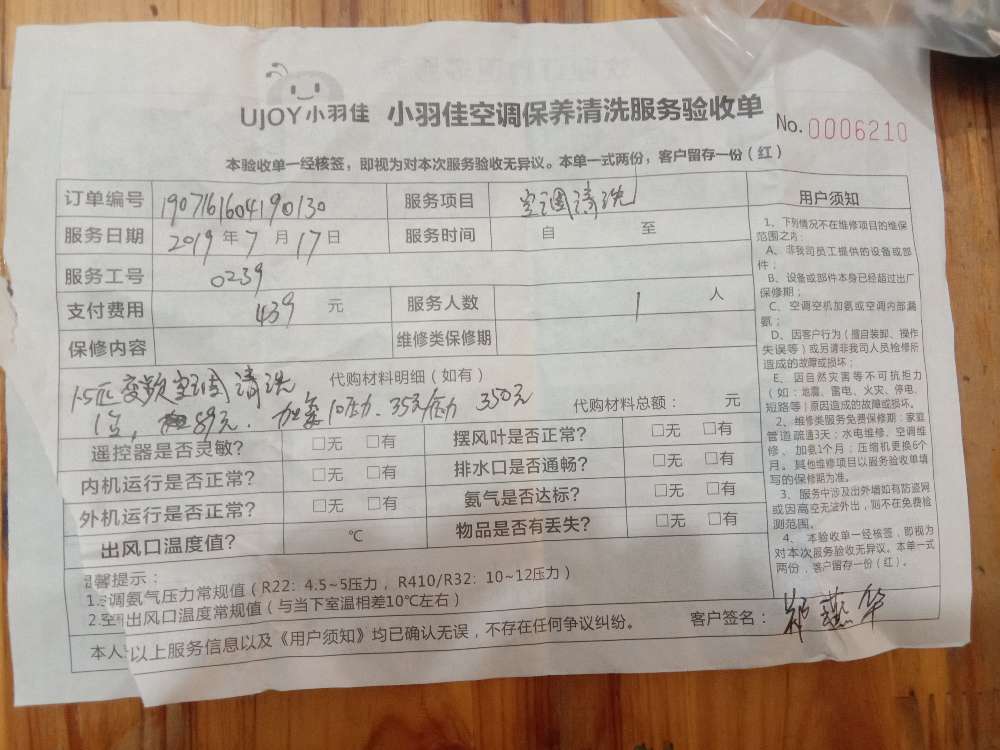 UJOY小羽佳 小羽佳空调保养清洗服务验收单
No. 0006210
本验收单一经核签，即视为对本次服务验收无异议。本单一式两份，客户留存一份（红）
订单编号 1907161604190130 服务项目 空调清洗
服务日期 2019年7月17日 服务时间 自 至
服务工号 0239
支付费用 439 元 服务人数 1 人
保修内容 维修类保修期
代购材料明细（如有）
1.5匹变频空调清洗
1台，89元．加氟10压力．35元/压力 350元
代购材料总额： 元
遥控器是否灵敏? □无 □有 摆风叶是否正常? □无 □有
内机运行是否正常? □无 □有 排水口是否通畅? □无 □有
外机运行是否正常? □无 □有 氨气是否达标? □无 □有
出风口温度值? ℃ 物品是否有丢失? □无 □有
馨提示：
1.调氨气压力常规值（R22：4.5~5压力，R410/R32：10~12压力）
2.空出风口温度常规值（与当下室温相差10℃左右）
本人以上服务信息以及《用户须知》均已确认无误，不存在任何争议纠纷。 客户签名： 郑燕华
用户须知
1、下列情况不在维修项目的维保
范围之内：
A、非我司员工提供的设备或部
件；
B、设备或部件本身已经超过出厂
保修期；
C、空调空机加氨或空调内部漏
氨；
D、因客户行为（擅自装卸、操作
失误等）或另请非我司人员检修所
造成的故障或损坏；
E、因自然灾害等不可抗拒力
（如：地震、雷电、火灾、停电、
短路等）原因造成的故障或损坏。
2、维修类服务免费保修期：家庭
管道疏通3天；水电维修、空调维
修、加氨1个月；压缩机更换6个
月。其他维修项目以服务验收单填
写的保修期为准。
3、服务中涉及出外墙如有防盗网
或因高空无法外出，则不在免费检
测范围。
4、本验收单一经核签，即视为
对本次服务验收无异议。本单一式
两份，客户留存一份（红）。